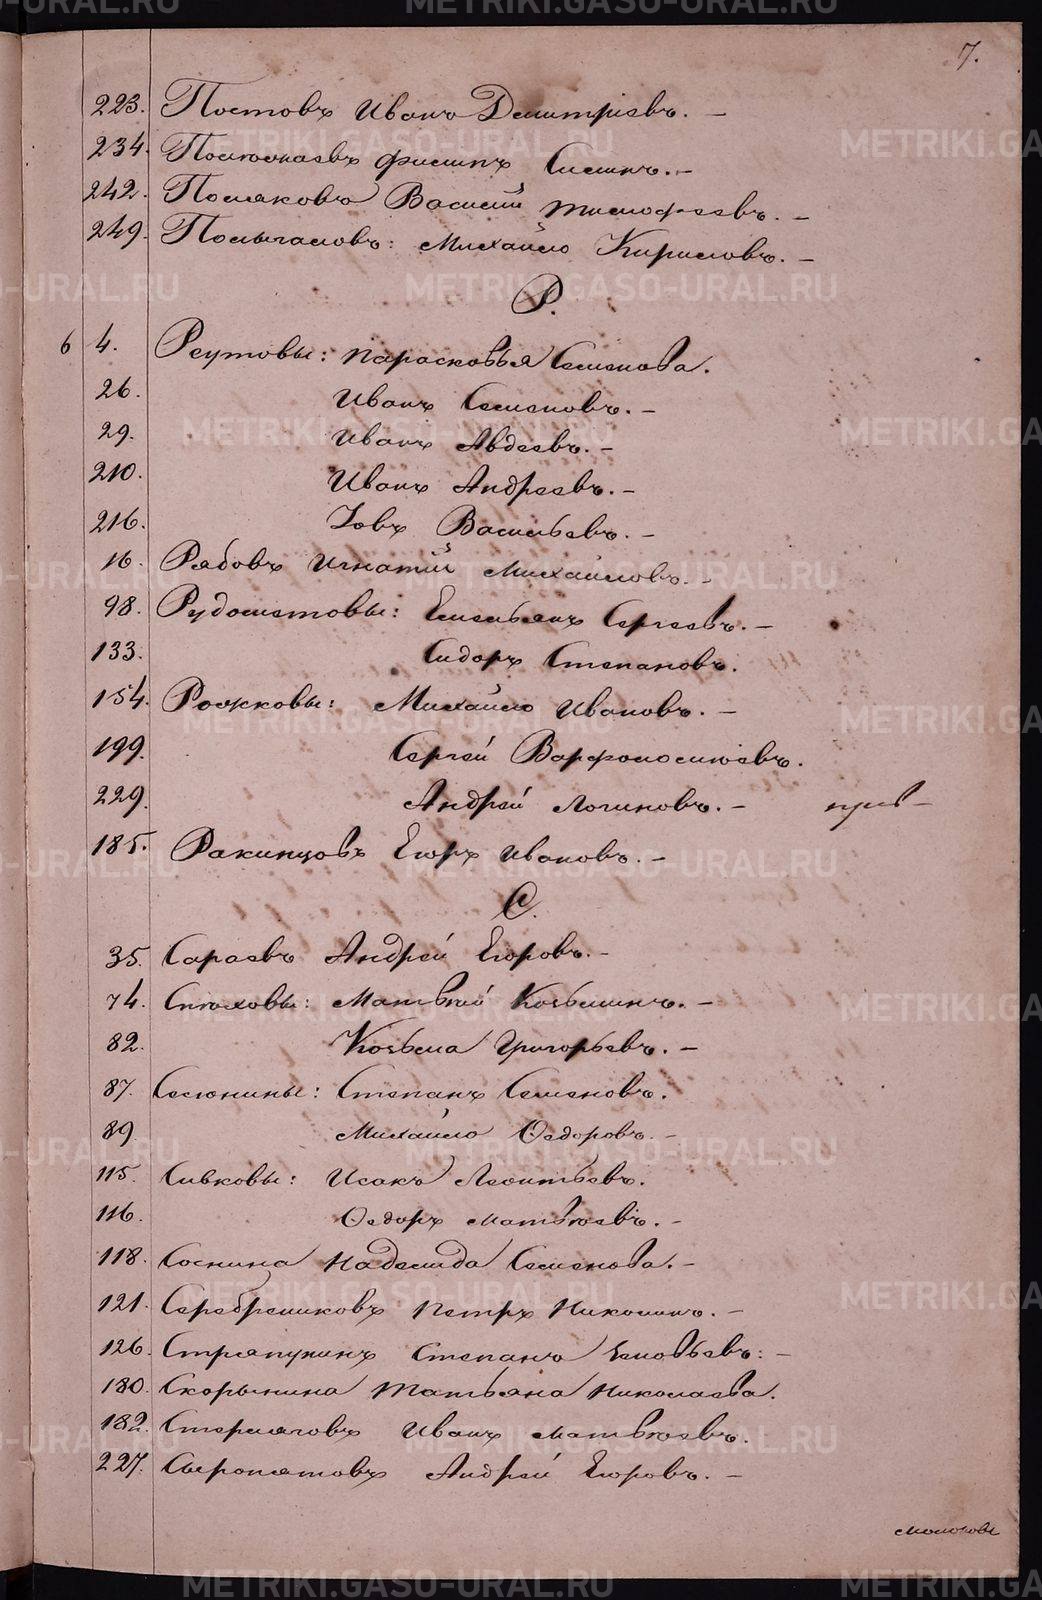 7.
223. Постовъ Иванъ Дмитріевъ. –
234. Филипъ Силинъ. –
242. Поляковъ Василій Тимофеевъ. –
249. Полыгаловъ: Михайло Кириловъ. –
Р.
6 4. Реутовы: Парасковья Семенова.
26. Иванъ Семеновъ. –
29. Иванъ Авдеевъ. –
210. Иванъ Андреевъ. –
216. Іовъ Васильевъ. –
16. Рябовъ Игнатій Михаиловъ. –
98. Рудометовы: Емельянъ Сергеевъ. –
133. Сидоръ Степановъ.
154. Рожковы: Михайло Ивановъ. –
199. Сергей Варфоломеевъ.
229. Андрей Логиновъ. –
185. Ракинцовъ Егоръ Ивановъ. –
С.
35. Сараевъ Андрей Егоровъ. –
74. Матвей Козьминъ. –
82. Козьма Григорьевъ. –
87. Селюнины: Степанъ Семеновъ.
89. Михайло Ѳедоровъ. –
115. Сивковы: Исакъ Леонтьевъ.
116. Ѳедоръ Матвѣевъ. –
118. Соснина Надежда Семенова. –
121. Серебрениковъ Петръ Николинъ. –
126. Стряпунинъ Степанъ –
180. Скорынина Татьяна Николаева.
182. Стерляговъ Иванъ Матвѣевъ.
227. Сыропятовъ Андрей Егоровъ. –
METRIKI.GASO-URAL.RU